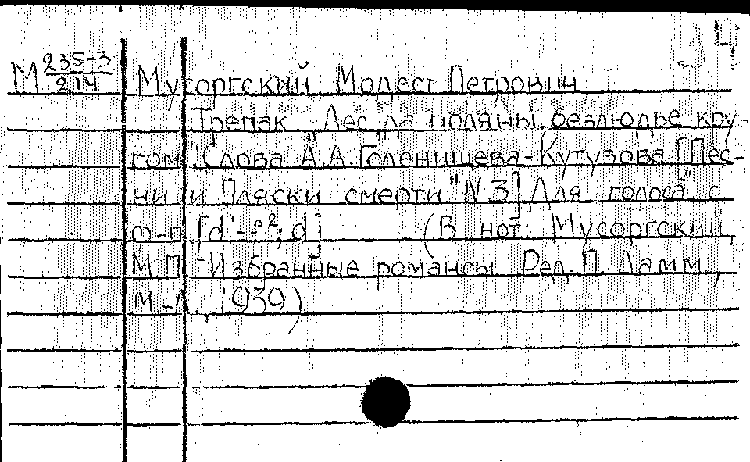 4
М 235-3/214 Мусоргский Модест Петрович
Трепак. Лес да поляны, безлюдье кру-
гом. Слова А.А. Голенищева-Кутузова. [Пес-
ни и пляски смерти" N 3] Для голоса с
ф-п. (В нот. Мусоргский,
М.П. Избранные романсы. Ред. П. Ламм,
М.-Л., 1939)